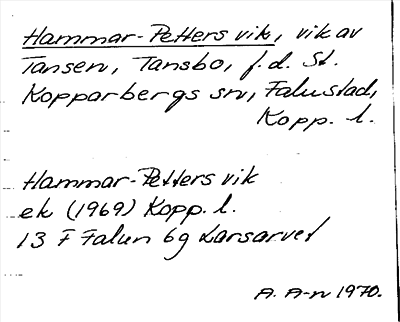 Hammar-Petters vik, vik av
Tansen, Tansbo, f.d. St.
Kopparbergs sn, Falu stad,
Kopp. l.
Hammar-Petters vik
ek (1969) Kopp. l.
13 F Falun 6g Karsarvet
A. A-n 1970.